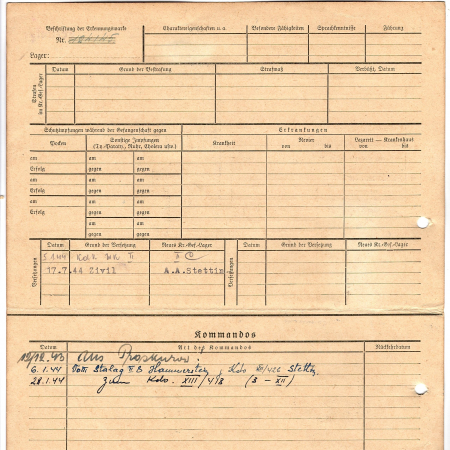 Beschriftung der Erkennungsmarke
Nr.
Lager:
Charaktereigenschaften u. a.
Besondere Fähigkeiten
Sprachkenntnisse
Führung
Strafen im Kr.-Gef.-Lager
Datum
Grund der Bestrafung
Strafmaß
Verbüßt, Datum
Schutzimpfungen während der Gefangenschaft gegen
Erkrankungen
Pocken
Sonstige Impfungen
(Ty.-Paraty., Ruhr, Cholera usw.)
Krankheit
Revier
von bis
Lazarett — Krankenhaus
von bis
am am am
Erfolg gegen gegen
am am am
Erfolg gegen gegen
am am am
Erfolg gegen gegen
am am
gegen gegen
Versetzungen
Datum
Grund der Versetzung
Neues Kr.-Gef.-Lager
Versetzungen
Datum
Grund der Versetzung
Neues Kr.-Gef.-Lager
5.1.44 II
17.7.44 Zivil A.A.Stettin
Kommandos
Datum
Art des Kommandos
Rückkehrdatum
19/12.43 aus Proskurov:
6.1.44 Vom Stalag II B Hammerstein, Kdo
28.1.44 zum Kdo. XIII/418 (3 - XII)